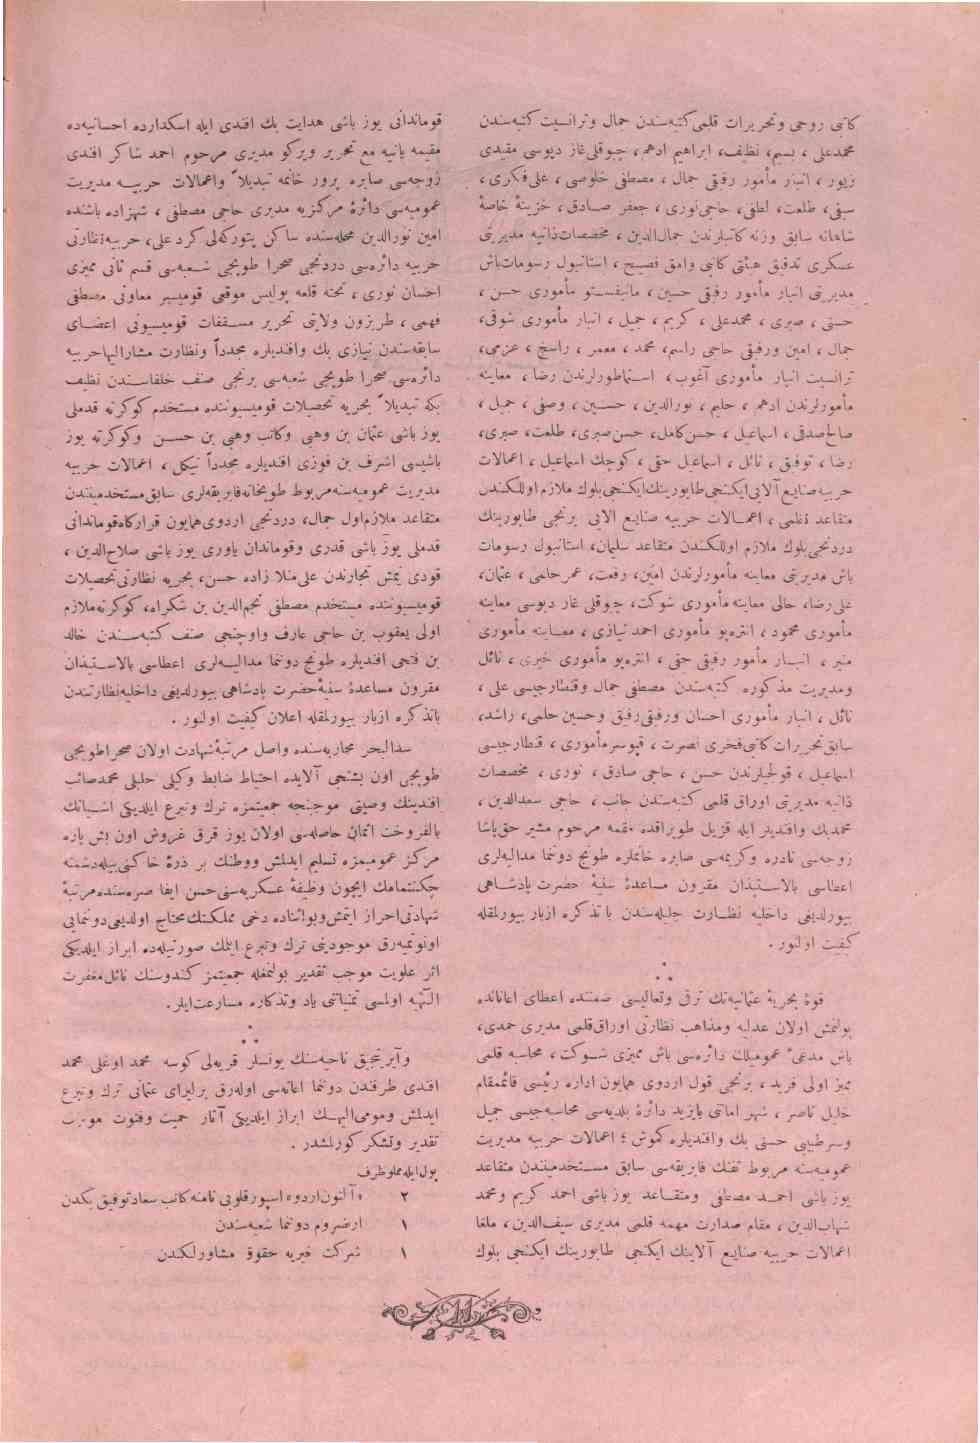 كاتبى روحى وتحريرات قلمى كتبه‌سندن جمال وترانسيت كتبه‌سندن
محمدعلى ، بسيم، نظيف، ابراهيم ادهم، چبوقلى غاز ديپوسى مقيدى
زيور ، انبار مأمور رفيقى جمال ، مصطفى خلوصى ، على فكرى،
سيفى، طلعت، لطفى، حاجى نورى ، جعفر صادق، خزينهٔ خاصهٔ
شاهانه سابق وزنه كاتبلرندن جمال‌الدين، مخصصات ذاتيه مديريتى
عسكرى تدقيق هيئتى كاتبى وامق فصيح ، استانبول رسومات باش
مديريتى انبار مأمور رفيقى حسين، مانيفستو مأمورى حسن ،
حسنى ، صبرى ، محمدعلى ، كريم ، جميل ، انبار مأمورى شوقى،
جمال ، امين ورفيقى حاجى راسم، محمد ، معمر ، راسخ ، عزمى،
ترانسيت انبار مأمورى آغوب ، استماطورلرندن رضا ، معاينه
مأمورلرندن ادهم ، حليم ، نورالدين ، حسين ، وصفى ، جميل ،
صالح صدقى ، اسماعيل ، حسن كامل، حسن صبرى، طلعت، صبرى،
رضا ، توفيق ، نائل ، اسماعيل حقى ، كوچك اسماعيل ، اعمالات
حربيه صنايع آلايى ايكنجى طابورينك ايكنجى بلوك ملازم اوللكندن
متقاعد نظمى ، اعمالات حربيه صنايع الايى برنجى طابورينك
دردنجى بلوك ملازم اوللكندن متقاعد سليمان، استانبول رسومات
باش مديريتى معاينه مأمورلرندن امين، رفعت، عمر حلمى ، عثمان،
على رضا، حالى معاينه مأمورى شوكت، چبوقلى غاز ديپوسى معاينه
مأمورى محمود ، انتره‌پو مأمورى احمد نيازى ، معاينه مأمورى
منير ، انبار مأمور رفيقى حقى ، انتره‌پو مأمورى خيرى ، نائل
ومديريت مذكوره كتبه‌سندن مصطفى جمال وقنطارجيسى على ،
نائل ، انبار مأمورى احسان ورفيقى رفيق وحسين حلمى، راشد،
سابق تحريرات كاتبى فخرى نصرت ، قپوسر مأمورى ، قنطارجيسى
اسماعيل ، قولجيلرندن حسن ، حاجى صادق ، نورى ، مخصصات
ذاتيه مديريتى اوراق قلمى كتبه‌سندن جانب ، حاجى سعدالدين ،
محمدبك وافنديلر ايله قزيل طوپراقده مقيمه مرحوم مشير حقى پاشا
زوجه‌سى نادره وكريمه‌سى صابره خانملره طونج دوننما مداليه‌لرى
اعطاسى بالاستيذان مقرون مساعدهٔ سنيهٔ حضرت پادشاهى
بيورلديغى داخليه نظارت جليله‌سندن با تذكره ازبار بيورلمقله
كيفيت اولنور .
قوهٔ بحريهٔ عثمانيه‌نك ترقى وتعاليسى ضمننده اعطاى اعاناتده
بولنمش اولان عدليه ومذاهب نظارتى اوراق قلمى مديرى حمدى،
باش مدعئ عموميلك دائره‌سى باش مميزى شوكت ، محاسبه قلمى
مميز اولى فريد ، برنجى قول اردوى همايون اداره رئيسى قائممقام
خليل ناصر ، شهر امانتى بايزيد دائرهٔ بلديه‌سى محاسبه‌جيسى جميل
وسرطبيبى حسنى بك وافنديلره كموش ؛ اعمالات حربيه مديريت
عموميه‌سنه مربوط تفنك فابريقه‌سى سابق مستخدميندن متقاعد
يوز باشى احمد مصطفى ومتقاعد يوز باشى احمد كريم ومحمد
شهاب‌الدين ، مقام صدارت مهمه قلمى مديرى سيف‌الدين، ملغا
اعمالات حربيه صنايع آلاينك ايكنجى طابورينك ايكنجى بلوك
قوماندانى يوز باشى هدايت بك افندى ايله اسكدارده احسانيه‌ده
مقيمه بانيه مع تحرير ويركو مديرى مرحوم احمد شاكر افندى
زوجه‌سى صابره پرور خانمه تبديلاً واعمالات حربيه مديريت
عموميه‌سى دائرهٔ مركزيه مديرى حاجى مصطفى ، شهزاده باشنده
امين نورالدين محله‌سنده ساكن پتوركه‌لى كرد على، حربيه نظارتى
حربيه دائره‌سى دردنجى صحرا طوپجى شعبه‌سى قسم ثانى مميزى
احسان نورى ، تخته قلعه پوليس موقعى قوميسير معاونى مصطفى
فهمى ، طربزون ولايتى تحرير مسقفات قوميسيونى اعضاى
سابقه‌سندن نيازى بك وافنديلره مجدداً ونظارت مشاراليها حربيه
دائره‌سى صحرا طوپجى شعبه‌سى برنجى صنف خلفاسندن نظيف
بكه تبديلاً بحريه تحصيلات قوميسيوننده مستخدم كوكرته قدملى
يوز باشى عثمان بن وهبى وكاتب وهبى بن حسن وكوكرته يوز
باشيسى اشرف بن فوزى افنديلره مجدداً نيكل ، اعمالات حربيه
مديريت عموميه‌سنه مربوط طوپخانه فابريقه‌لرى سابق مستخدميندن
متقاعد ملازم اول جمال، دردنجى اردوى همايون قراركاه قوماندانى
قدملى يوز باشى قدرى وقوماندان ياورى يوز باشى صلاح‌الدين ،
قودى يمش تجارندن على منلا زاده حسن، بحريه نظارتى تحصيلات
قوميسيوننده مستخدم مصطفى نجم‌الدين بن شكراه، كوكرته ملازم
اولى يعقوب بن حاجى عارف واوچنجى صنف كتبه‌سندن خالد
بن فتحى افنديلره طونج دوننما مداليه‌لرى اعطاسى بالاستيذان
مقرون مساعدهٔ سنيهٔ حضرت پادشاهى بيورلديغى داخليه نظارتندن
باتذكره ازبار بيورلمقله اعلان كيفيت اولنور .
سدالبحر محاربه‌سنده واصل مرتبهٔ شهادت اولان صحرا طوپجى
طوپجى اون بشنجى آلايده احتياط ضابط وكيلى حلبلى محمد صائب
افندينك وصيتى موجبنجه جمعيتمزه ترك وتبرع ايلديكى اشيانك
بالفروخت اثمان حاصله‌سى اولان يوز قرق غروش اون بش پاره
مركز عموميمزه تسليم ايدلمش ووطنك بر ذرهٔ خاكنى بيله دشمنه
چيكنتمامك ايچون وظيفهٔ عسكريه‌سنى حسن ايفا صره‌سنده مرتبهٔ
شهادتى احراز ايتمش وبو اثناده دخى مملكتك محتاج اولديغى دوننمايى
اونوتميه‌رق موجودينى ترك وتبرع ايلمك صورتيله‌ده ابراز ايلديكى
اثر علويت موجب تقدير بولنمغله جمعيتمز كندوسنك نائل مغفرت
الٓهيه اولمسى تمنياتنى ياد وتذكاره مسارعت ايلر .
وآيرنجيق ناحيه‌سنك يونسلر قريه‌لى كوسه محمد اوغلى محمد
افندى طرفندن دوننما اعانه‌سى اوله‌رق برليراى عثمانى ترك وتبرع
ايدلمش ومومى‌اليهك ابراز ايلديكى آثار حميت وفتوت موجب
تقدير وتشكر كورلمشدر .
پول ايله مملو ظرف
٢ ٥ آلتون اردوه اسپور قلوبى نامنه كاتب سعاد توفيق بكدن
١ ارضروم دوننما شعبه‌سندن
١ شركت خيريه حقوق مشاورلكندن